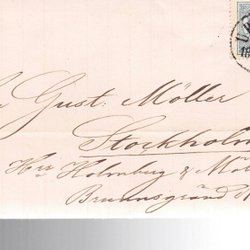 Gust. Möller
Stockholm
Hrr Holmberg & Möl
Brunnsgränd